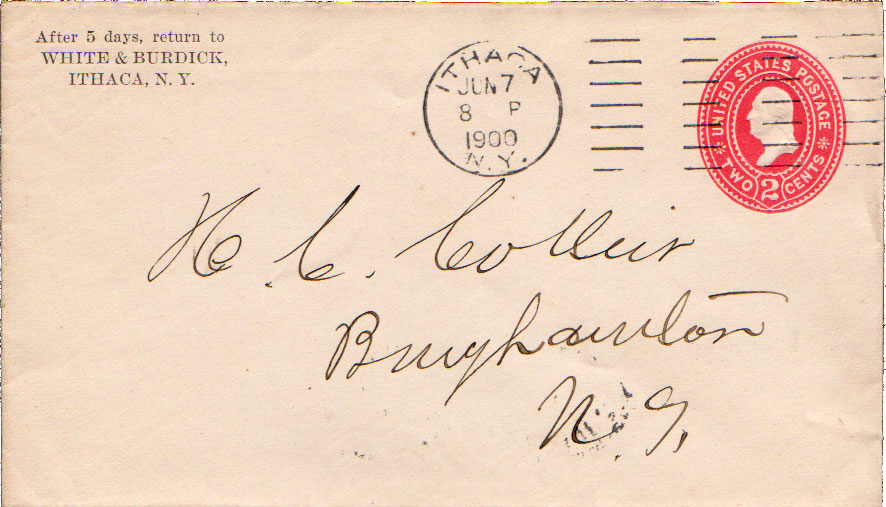 After 5 days, return to
WHITE & BURDICK,
ITHACA, N. Y.
ITHACA
JUN 7
8 P
1900
N.Y.
UNITED STATES POSTAGE
TWO 2 CENTS
H. C. Collier
Binghamton
N. Y.